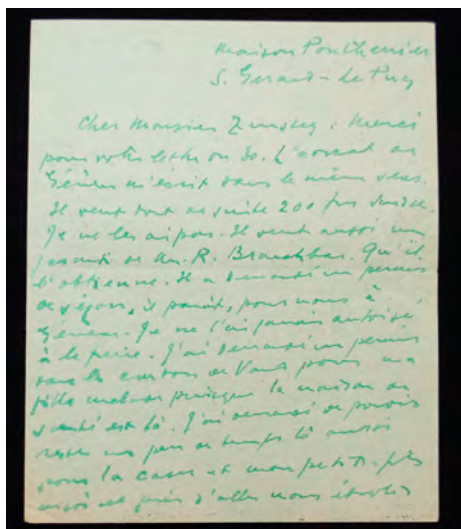 Maison Ponthenier
S. Gerand-le-Puy
Cher Monsieur Zumsteg: Merci
pour votre lettre du 30. L'avocat de
Genève m'écrit dans le même sens.
Il veut tout de suite 200 frs suisse.
Je ne les ai pas. Il veut aussi un
de M. R. Brauchbar. Qu'il
l'obtienne. Il a demandé un permis
de séjour, il paraît, pour nous à
Genève. Je ne l'ai jamais autorisé
à le faire. J'ai demandé un permis
dans le canton de Vaud pour ma
fille malade puisque la maison de
santé est là. J'ai demandé de pouvoir
rester un peu de temps là aussi
pour la caser et mon petit-fils
aussi est près d'aller nous